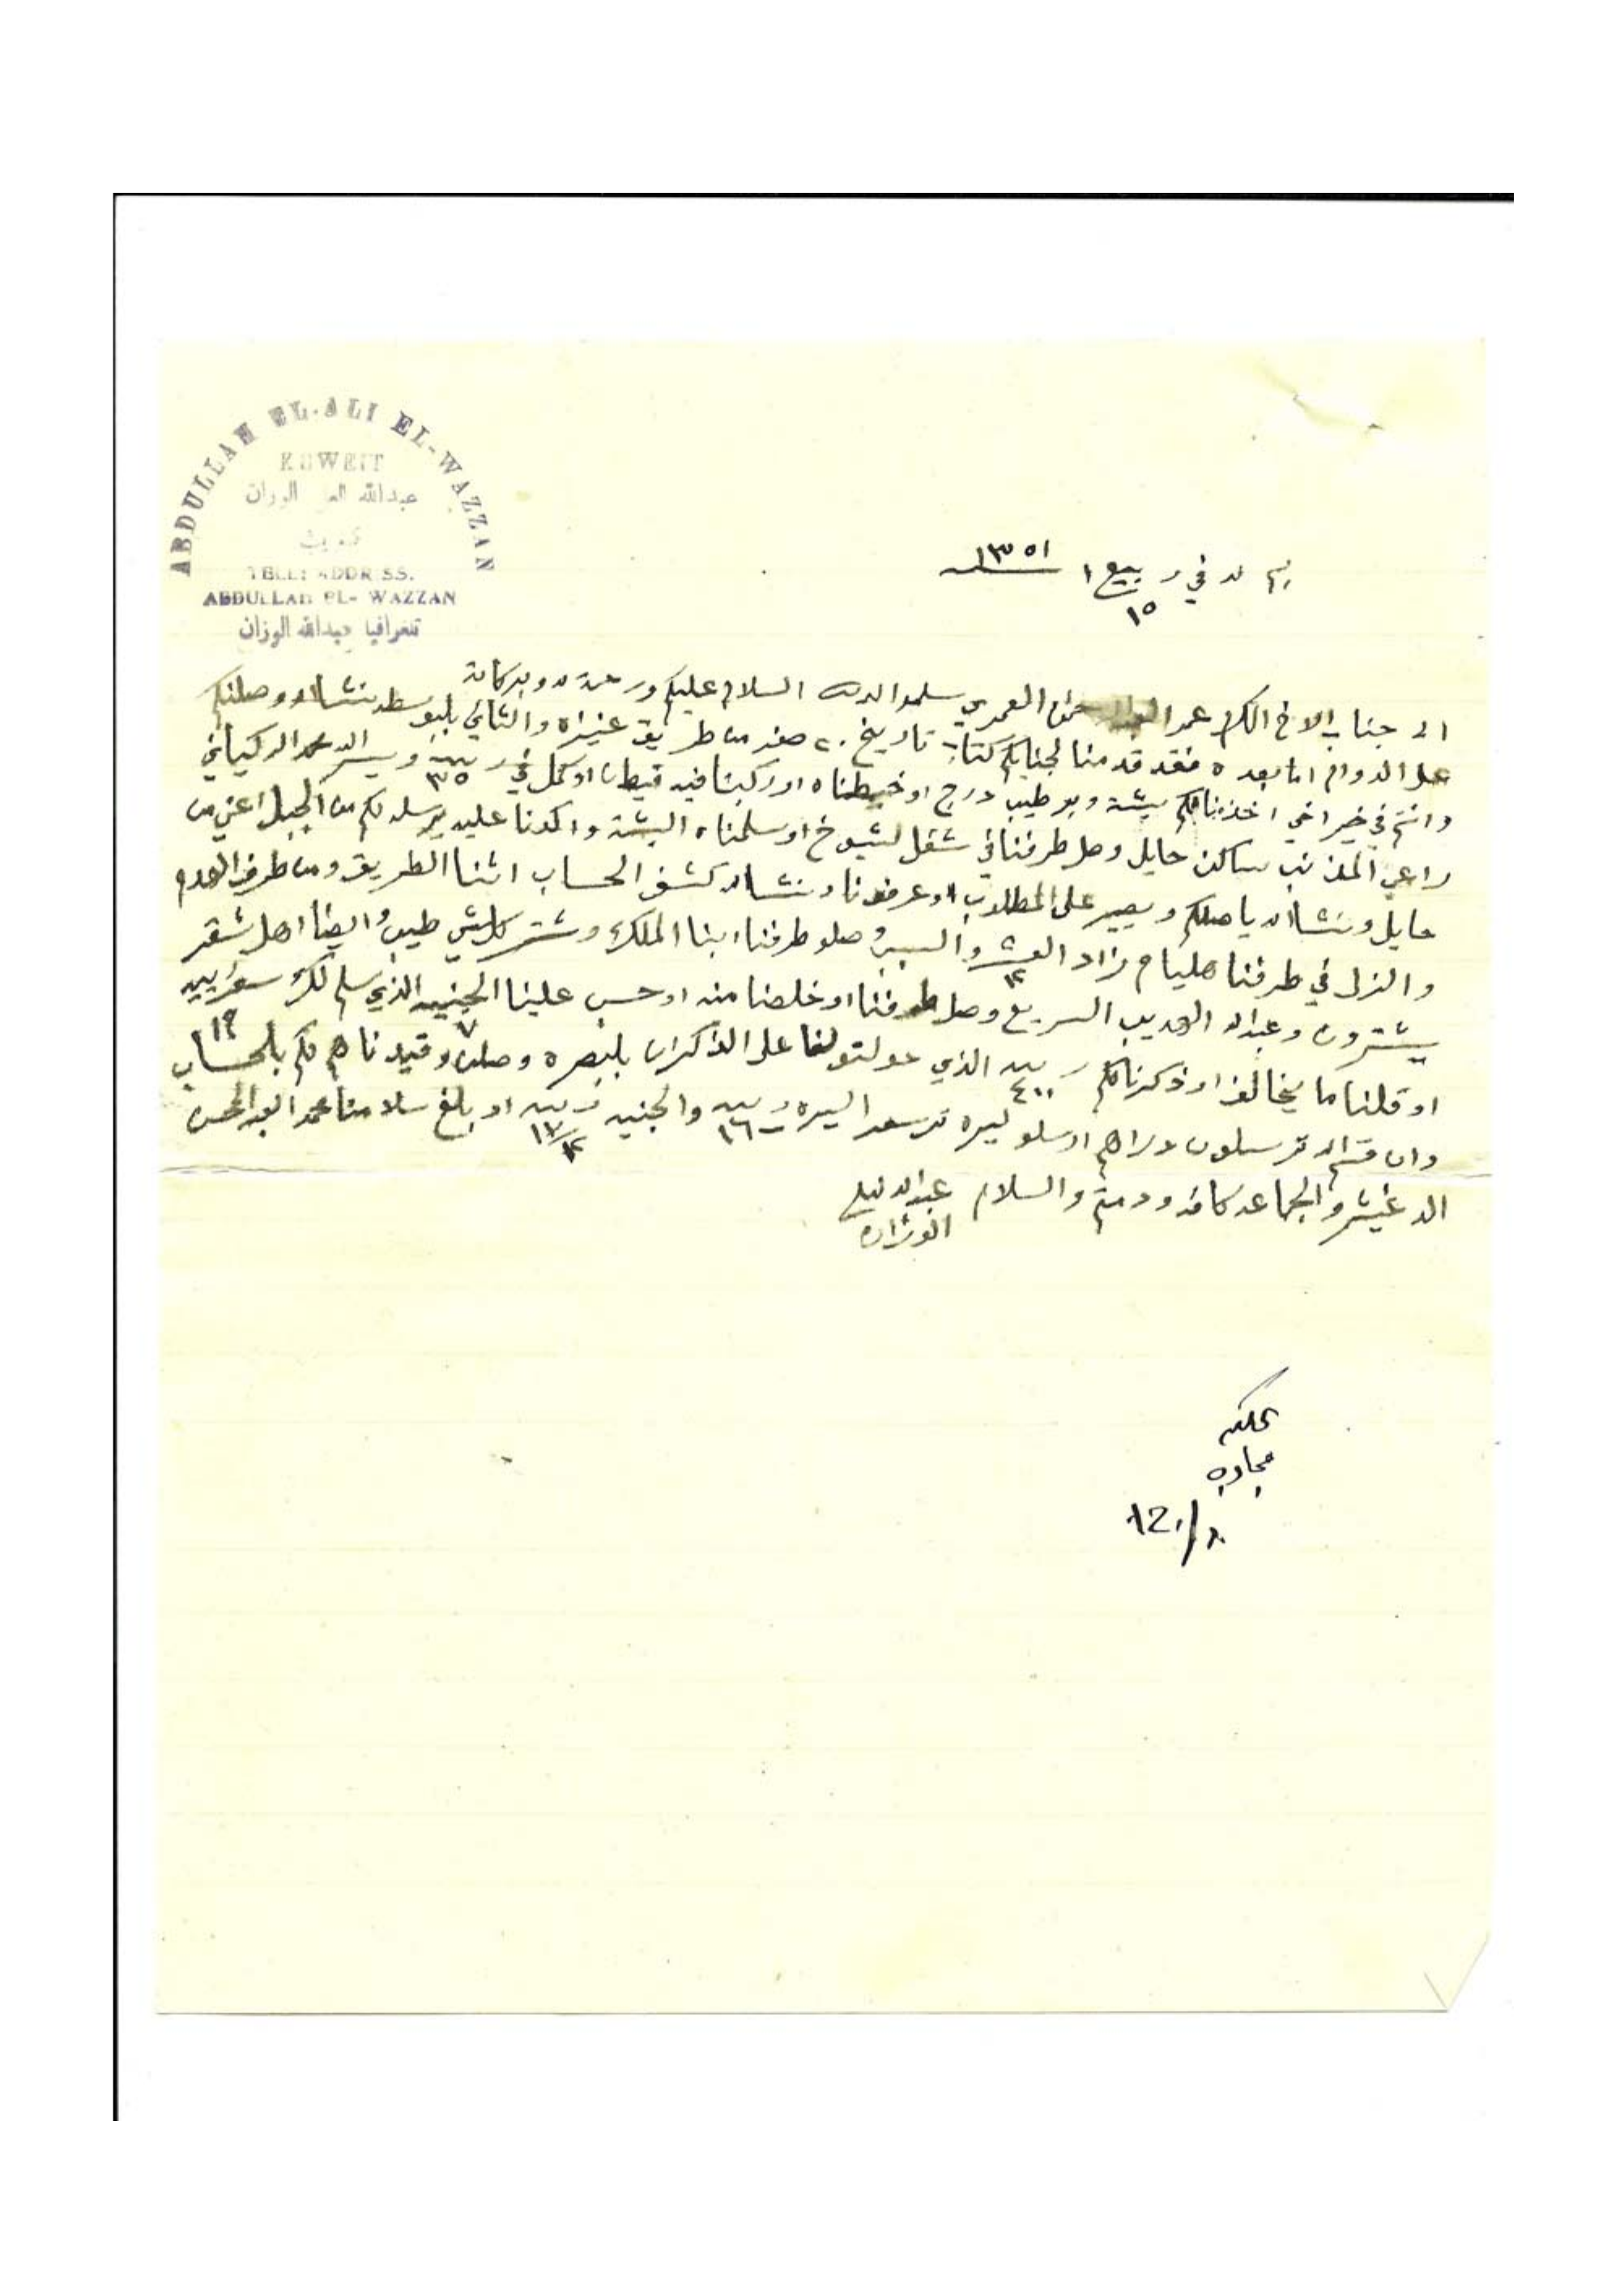 ABDULLAH EL-ALI EL-WAZZAN
KUWEIT
عبدالله العلي الوزان
كويت
TELE: ADDRESS.
ABDULLAH EL-WAZZAN
تلغرافيا عبدالله الوزان
في ربيع ١ ١٣٥١
١٥
الى جناب الاخ المكرم العمري سلمه الله السلام عليكم ورحمة الله وبركاته
على الدوام اما بعده فقد قدمنا لجنابكم كتاب تاريخ ٢٠ صفر من طريق عنيزه والثاني بلبوسطه نشالله وصلنكم
وانتم في خير اخي اخذنا لكم بشت وبر طيب درج او خيطناه او ركبنا فيه قيطان او كمل في ربيه ٣٥ ويسر الله محمد الركياني
راعي المذنب ساكن حايل وصل طرفنا في شغل لشيوخ او سلمناه البشت واكدنا عليه يرسله لكم من الجبل اعني من
حايل ونشالله ياصلكم ويصير على المطلوب او عرفونا ونشالله كشف الحساب اثنا الطريق ومن طرف الهدم
والنزل في طرفنا هليام زاد العشر ١٢ والسبب وصلو طرفنا ابنا الملك وشترو كلش طيب وايضا اهل شقر
يشترون وعبدالله الهديب السريع وصل طرفنا او خلصنا منه او حسب علينا الجنيه ٧ الذي سلم لك سعر ربيه ١٩
او قلنا ما يخالف او ذكرنا لكم ربيه ٤٠٠ الذي حولتو لنا على الذكران بلبصره وصلن وقيدناهم لكم بلحساب
وان قسم الله ترسلون دراهم ارسلو ليره ترسعر اليره ربيه ١٦ والجنيه ربيه ١٧/١٢ او بلغ سلامنا محمد العبدالمحسن
الدغيشر والجماعه كافه ودمتم والسلام عبدالله العلي
الوزان